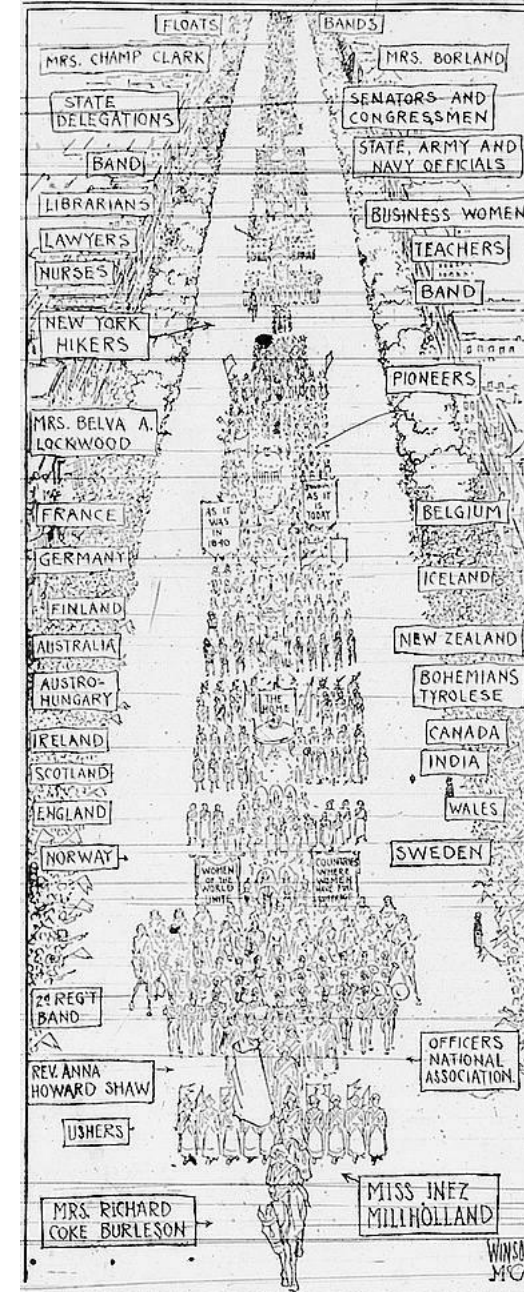 FLOATS
BANDS
MRS. CHAMP CLARK
MRS. BORLAND
STATE
DELEGATIONS
SENATORS AND
CONGRESSMEN
BAND
STATE, ARMY AND
NAVY OFFICIALS
LIBRARIANS
BUSINESS WOMEN
LAWYERS
TEACHERS
NURSES
BAND
NEW YORK
HIKERS
PIONEERS
MRS. BELVA A.
LOCKWOOD
AS IT
WAS
IN
1840
AS IT
IS
TODAY
FRANCE
BELGIUM
GERMANY
ICELAND
FINLAND
AUSTRALIA
NEW ZEALAND
AUSTRO-
HUNGARY
THE
BOHEMIANS
TYROLESE
IRELAND
CANADA
SCOTLAND
INDIA
ENGLAND
WALES
NORWAY
SWEDEN
WOMEN
OF THE
WORLD
UNITE
COUNTRIES
WHERE
WOMEN
HAVE FULL
SUFFRAGE
2D REG'T
BAND
OFFICERS
NATIONAL
ASSOCIATION.
REV. ANNA
HOWARD SHAW
USHERS
MISS INEZ
MILLHOLLAND
MRS. RICHARD
COKE BURLESON
WINSO
MC